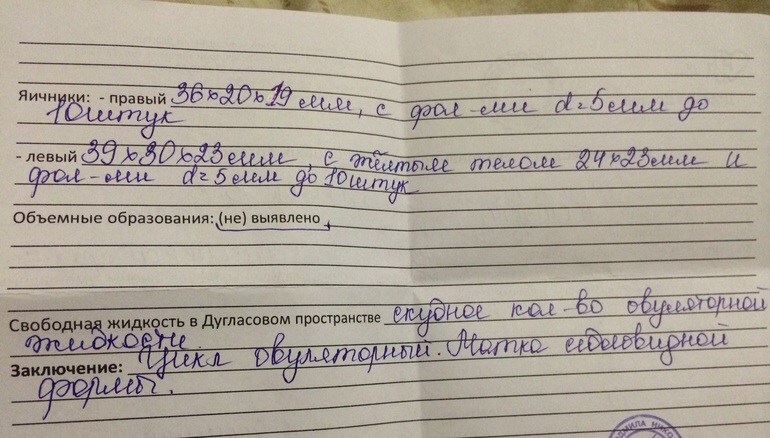 Яичники: - правый 36×20×19 мм, с фол-ми d=5мм до
10штук
- левый 39×30×23мм, с жёлтым телом 24×23мм и
фол-ми d=5мм до 10штук
Объемные образования: (не) выявлено
Свободная жидкость в Дугласовом пространстве скудное кол-во овуляторной
жидкости.
Заключение: Цикл овуляторный. Матка седловидной
формы.